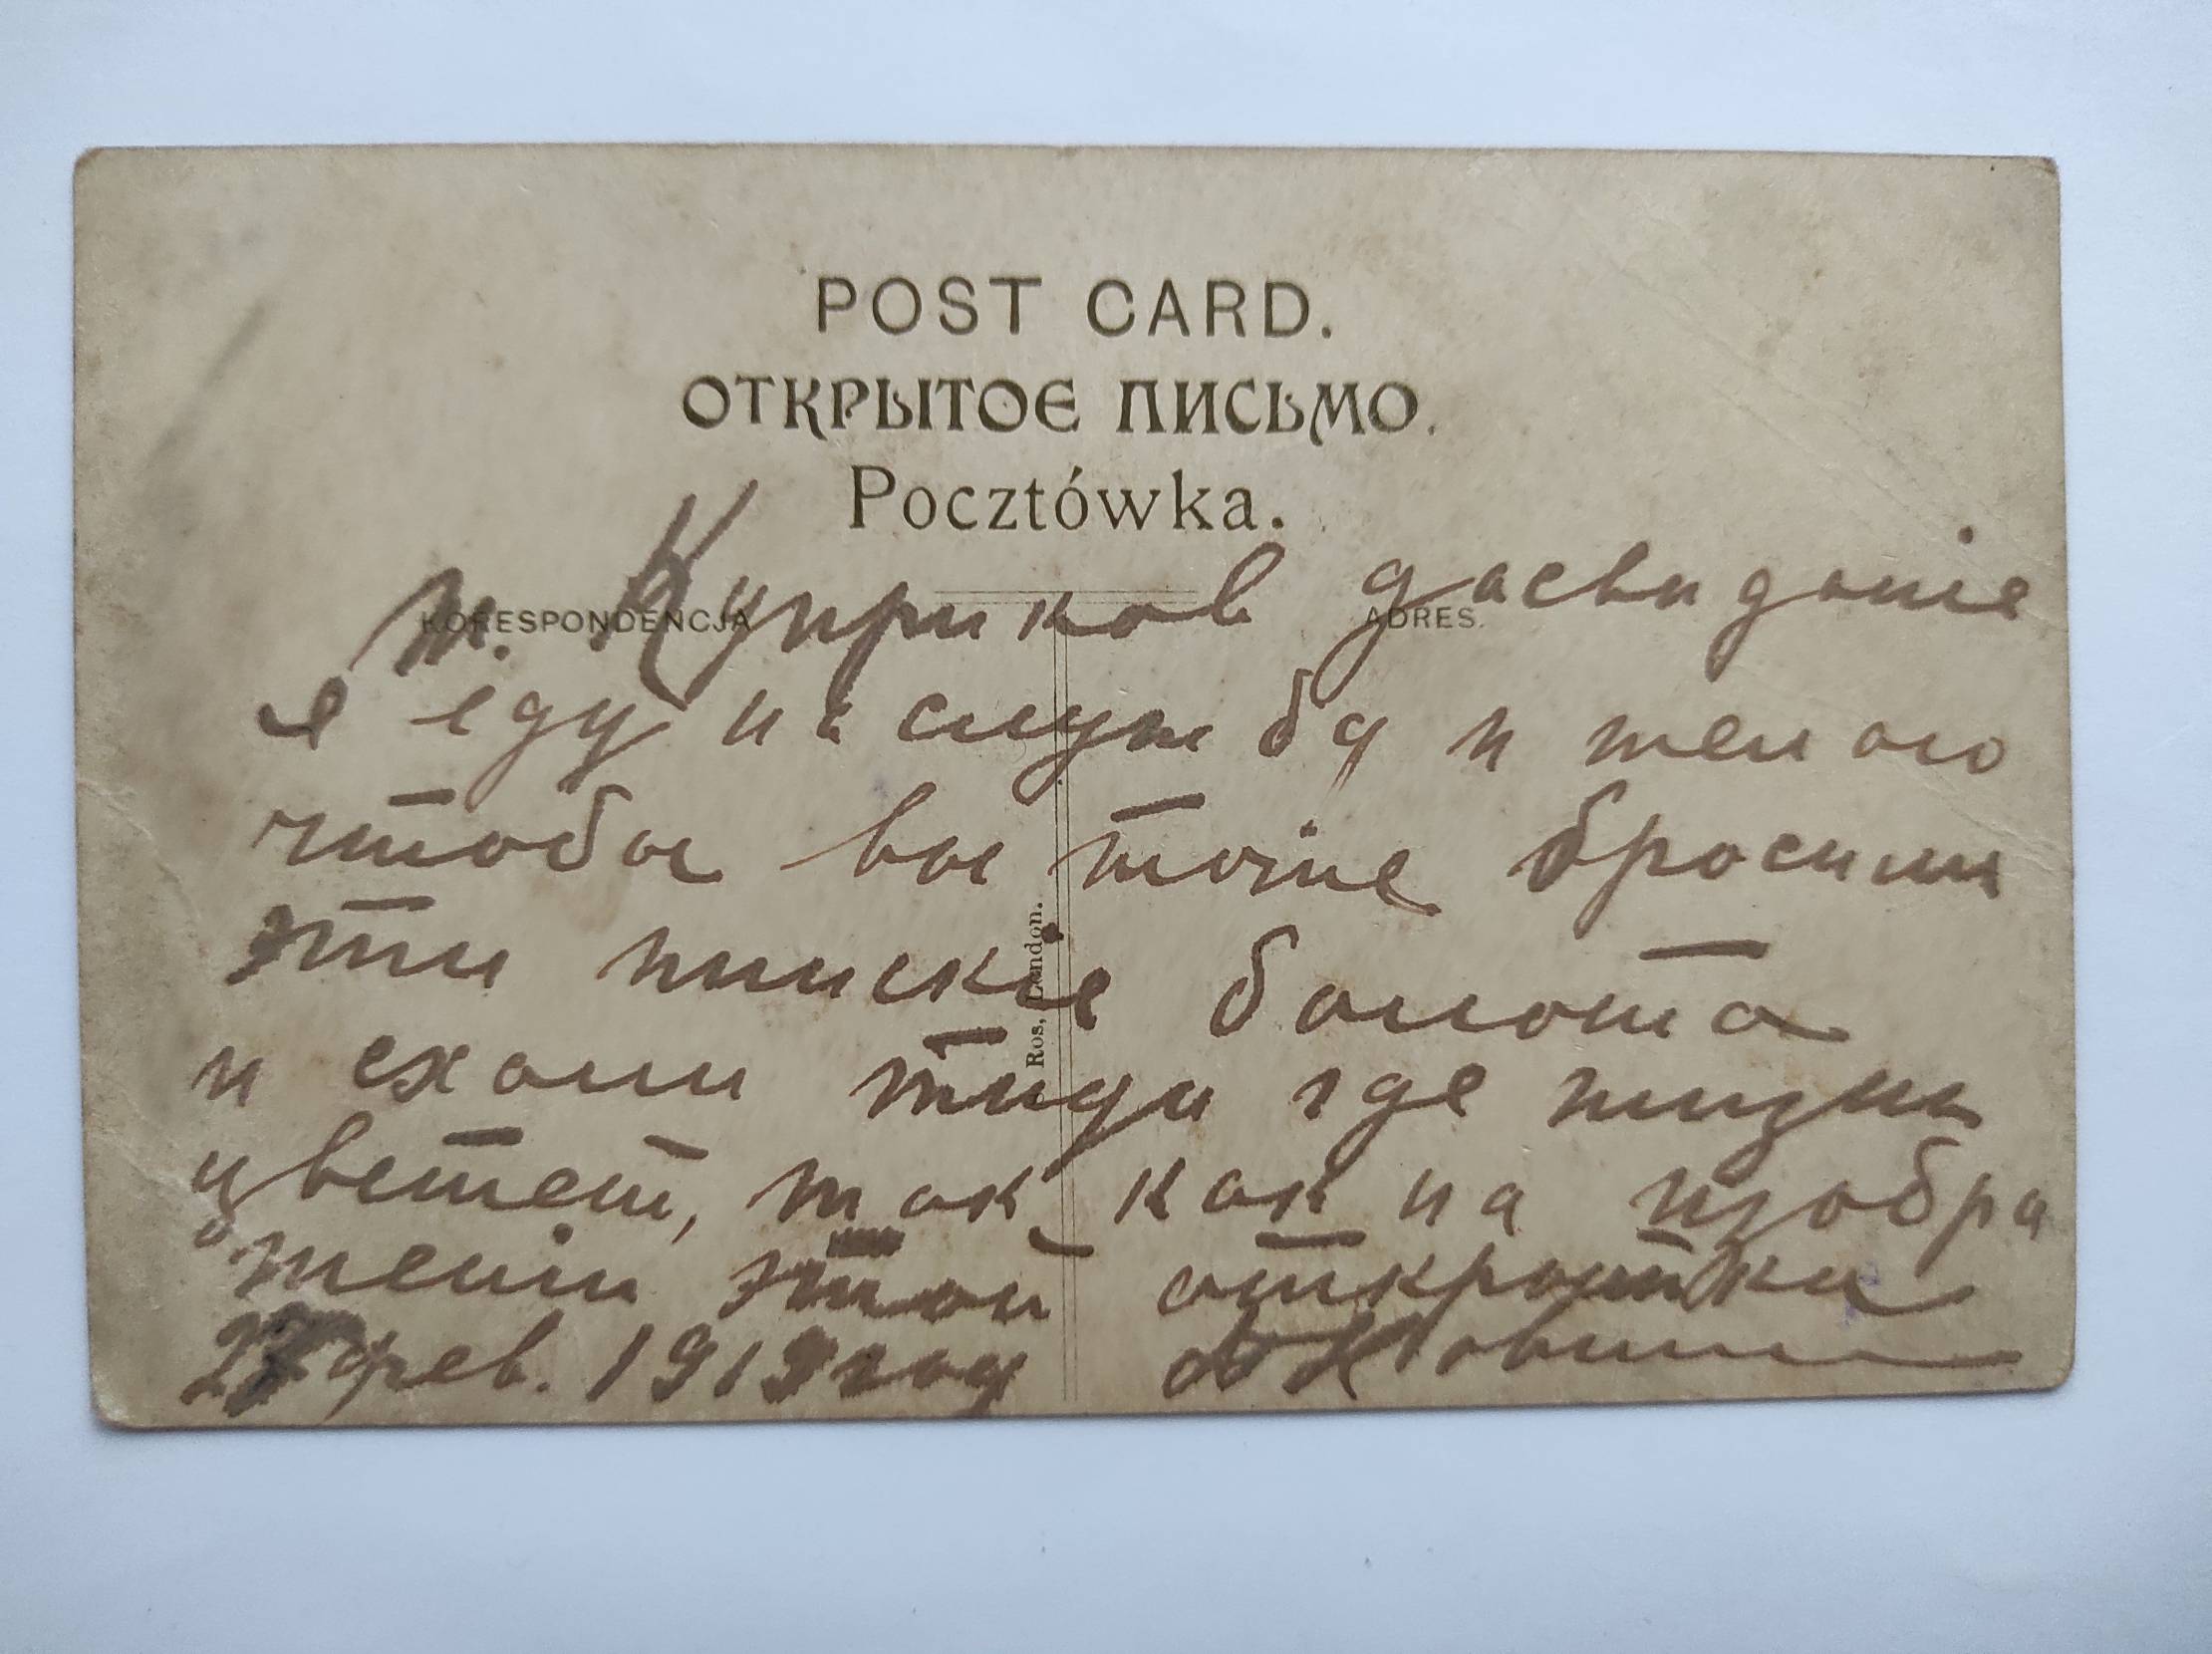 POST CARD.
ОТКРЫТОЕ ПИСЬМО.
Pocztówka.
KORESPONDENCJA
ADRES.
т. Куприков досвиданіе
я еду на службу и желаю
чтобы вы тоіже бросили
эти пинскіе болота
и ехали туда где жизнь
цветет, так как на изобра
жении этой открытки
27 фев. 1913 год
Ros, London.